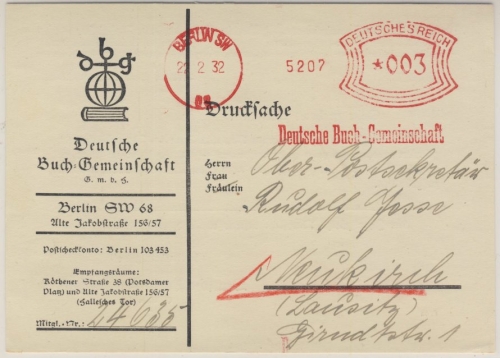 dbg
Deutsche
Buch-Gemeinschaft
G. m. b. H.
Berlin SW 68
Alte Jakobstraße 156/57
Postscheckkonto: Berlin 103 453
Empfangsräume:
Köthener Straße 38 (Potsdamer
Platz) und Alte Jakobstraße 156/57
(Hallesches Tor)
Mitgl.-Nr.: 24635
BERLIN SW
22 2 32
68
5207
DEUTSCHES REICH
*003
Drucksache
Deutsche Buch-Gemeinschaft
Herrn
Frau
Fräulein
Ober-Postsekretär
Rudolf Jesse
Neukirch
(Lausitz)
1